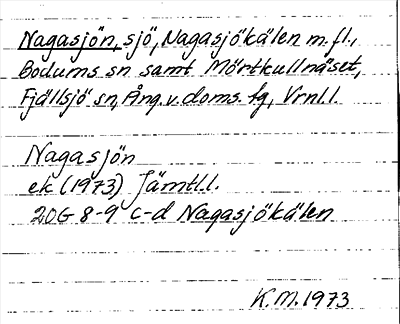 Nagasjön, sjö, Nagasjökälen m.fl.,
Bodums sn samt Mörtkullnäset,
Fjällsjö sn, Ång.v.doms.fg, Vrnl.l.
Nagasjön
ek (1973) Jämtl.l.
20G 8-9 c-d Nagasjökälen
K.M.1973